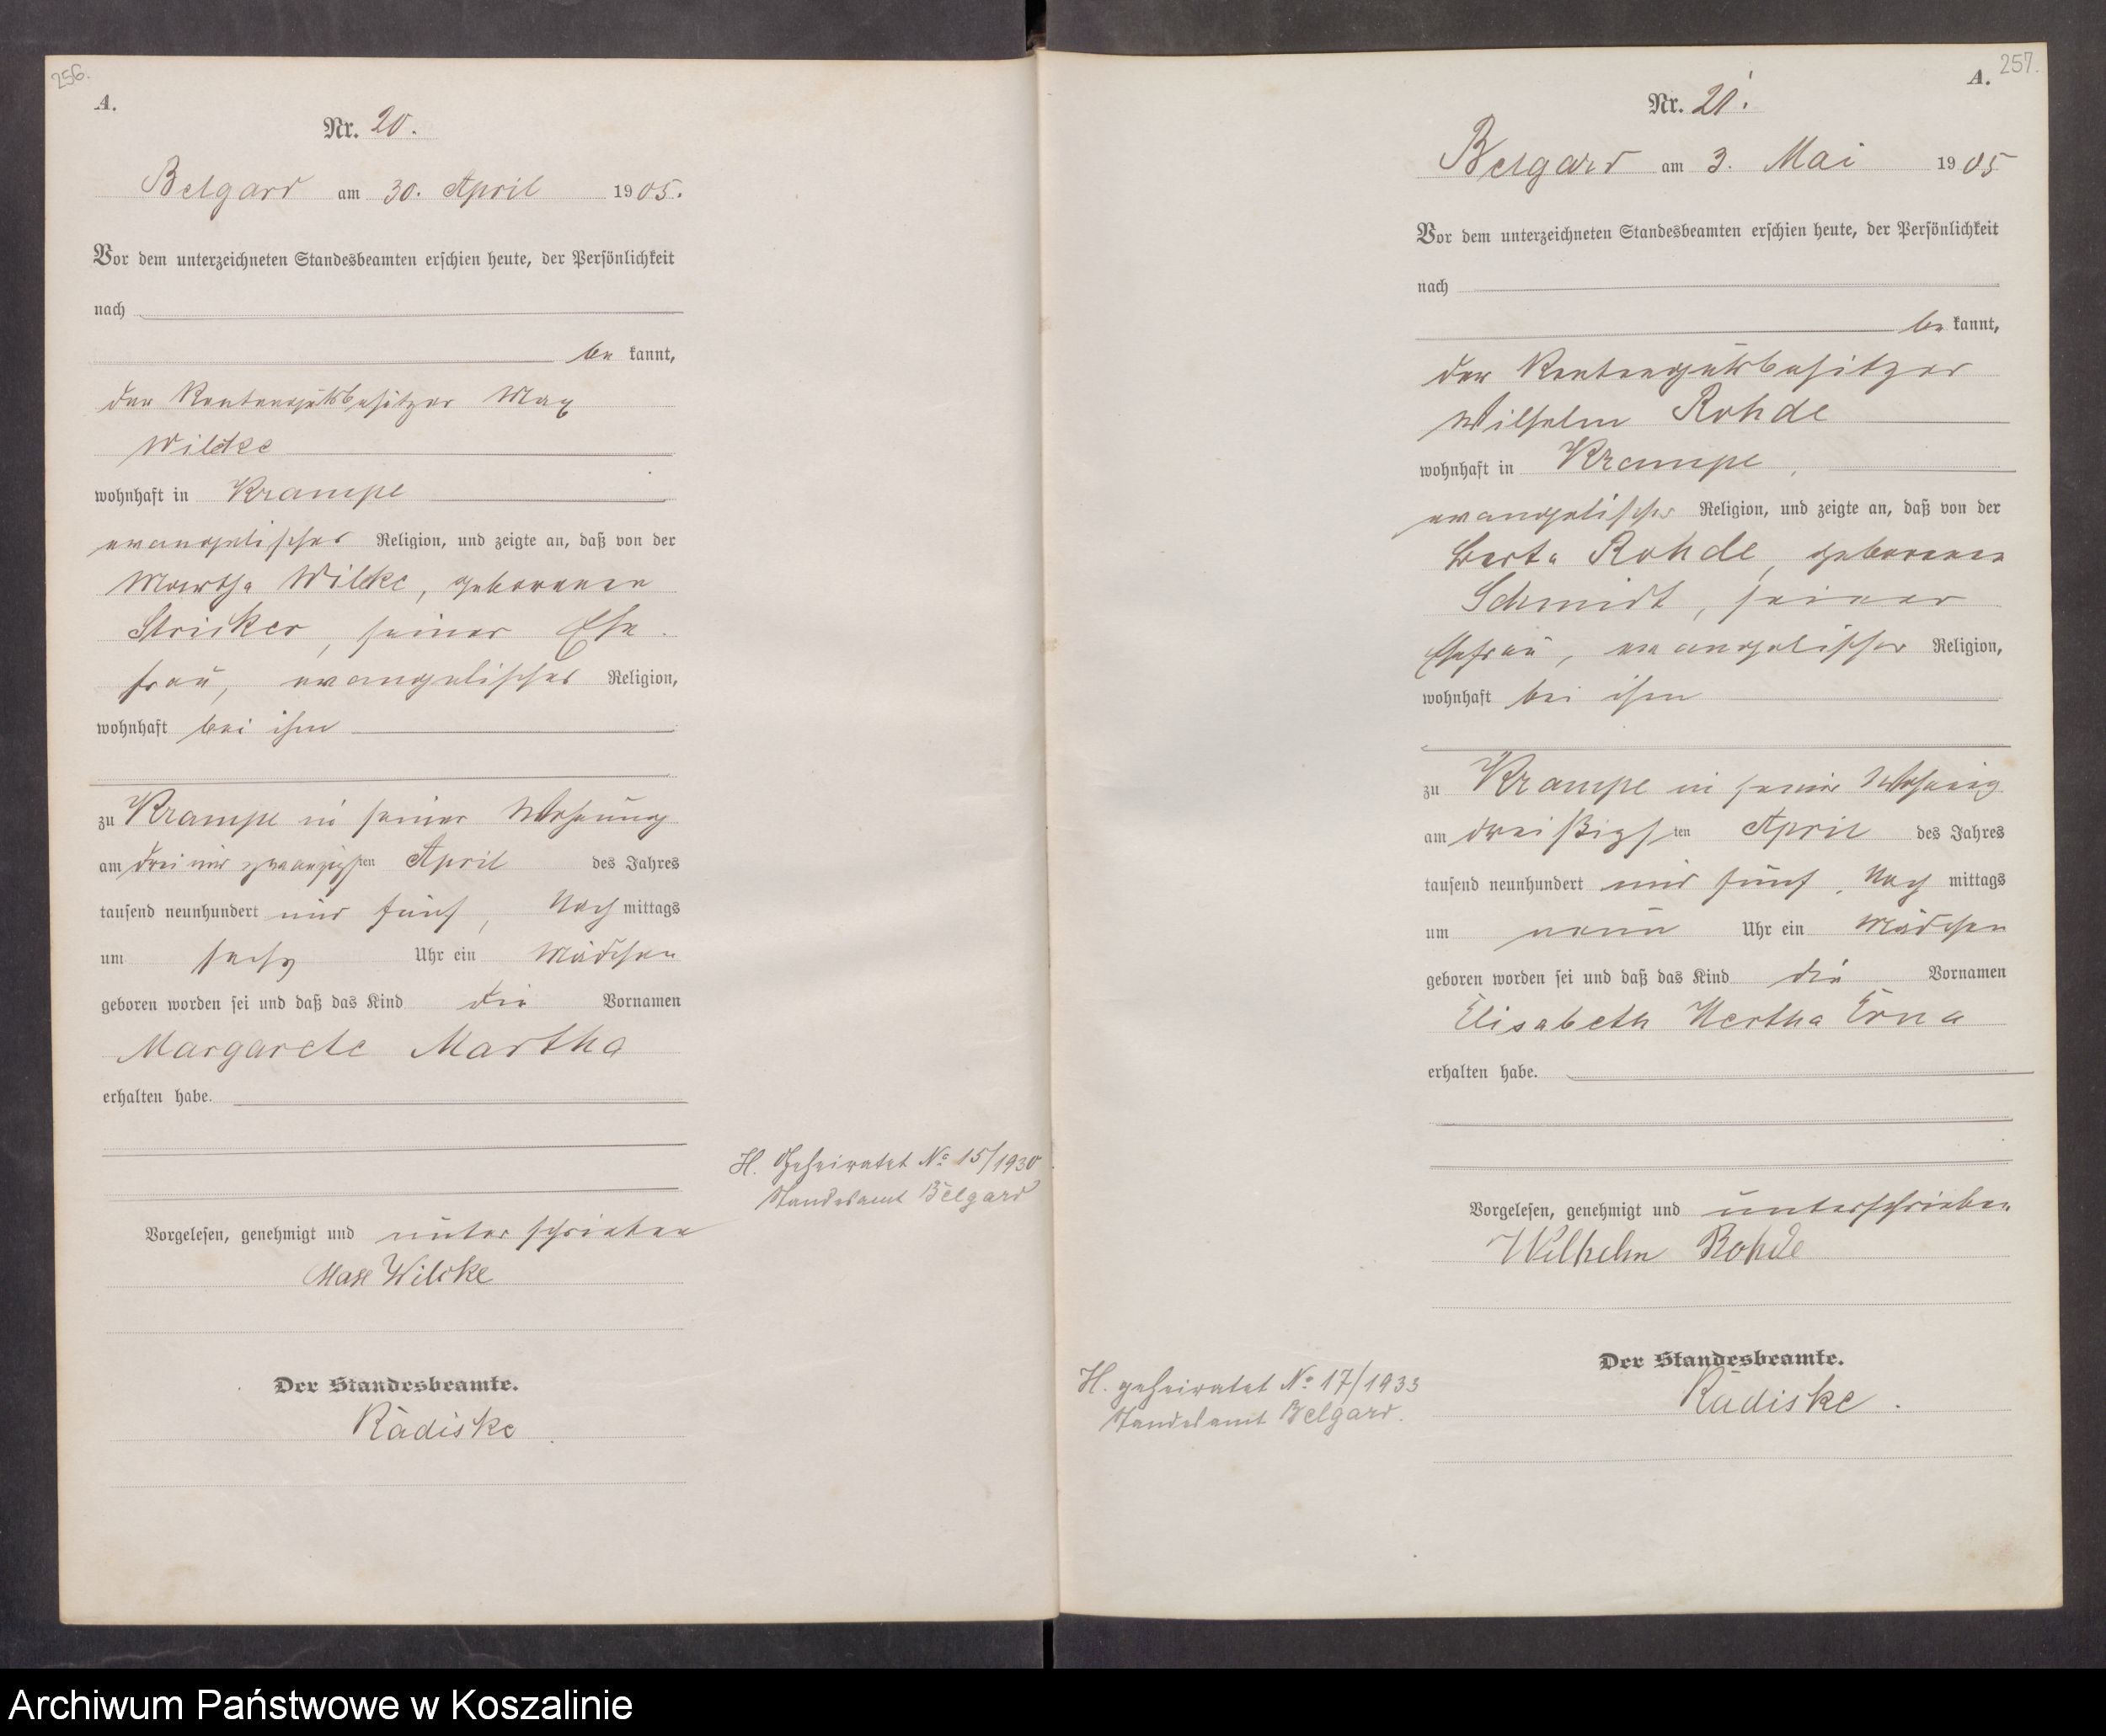 256.
A.
Nr. 20.
Belgard am 30. April 1905.
Vor dem unterzeichneten Standesbeamten erschien heute, der Persönlichkeit
nach
be kannt,
der Rentengutsbesitzer Max
Wildke
wohnhaft in Krampe
evangelischer Religion, und zeigte an, daß von der
Martha Wilcke, geborenen
Stricker, seiner Ehe-
frau, evangelischer Religion,
wohnhaft bei ihm
zu Krampe in seiner Wohnung
am drei und zwanzigsten April des Jahres
tausend neunhundert und fünf, Nach mittags
um sechs Uhr ein Mädchen
geboren worden sei und daß das Kind die Vornamen
Margarete Martha
erhalten habe.
Vorgelesen, genehmigt und unterschrieben
Max Wilcke
Der Standesbeamte.
Radiske
H. Geheiratet No 15/1930
Standesamt Belgard
257.
A.
Nr. 21.
Belgard am 3. Mai 1905
Vor dem unterzeichneten Standesbeamten erschien heute, der Persönlichkeit
nach
be kannt,
der Rentengutsbesitzer
Wilhelm Rohde
wohnhaft in Krampe,
evangelischer Religion, und zeigte an, daß von der
Berta Rohde, geborenen
Schmidt, seiner
Ehefrau, evangelischer Religion,
wohnhaft bei ihm
zu Krampe in seiner Wohnung
am dreißigsten April des Jahres
tausend neunhundert und fünf, Nach mittags
um neun Uhr ein Mädchen
geboren worden sei und daß das Kind die Vornamen
Elisabeth Hertha Erna
erhalten habe.
Vorgelesen, genehmigt und unterschrieben
Wilhelm Rohde
Der Standesbeamte.
Radiske.
H. geheiratet No 17/1933
Standesamt Belgard.
Archiwum Państwowe w Koszalinie